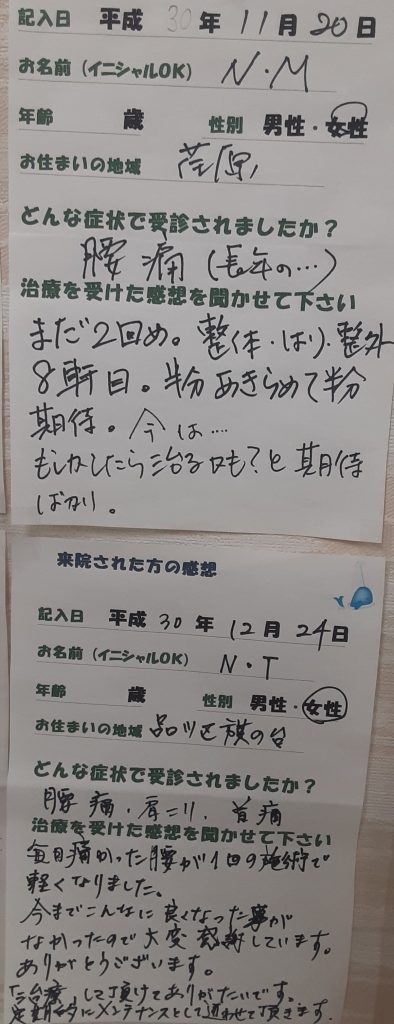 記入日 平成 30 年 11 月 20 日
お名前(イニシャルOK) N・M
年齢 歳 性別 男性・女性
お住まいの地域 荏原
どんな症状で受診されましたか?
腰痛(長年の…)
治療を受けた感想を聞かせて下さい
まだ2回め。整体・はり・整外
8軒目。半分あきらめて半分
期待。今は‥‥
もしかしたら治るかも?と期待
ばかり。
来院された方の感想
記入日 平成 30 年 12 月 24 日
お名前(イニシャルOK) N・T
年齢 歳 性別 男性・女性
お住まいの地域 品川区旗の台
どんな症状で受診されましたか?
腰痛・肩こり、首痛
治療を受けた感想を聞かせて下さい
毎日痛かった腰が1回の施術で
軽くなりました。
今までこんなに良くなった事が
なかったので大変感謝しています。
ありがとうございます。
治療して頂けてありがたいです。
定期的にメンテナンスとして通わせて頂きます。